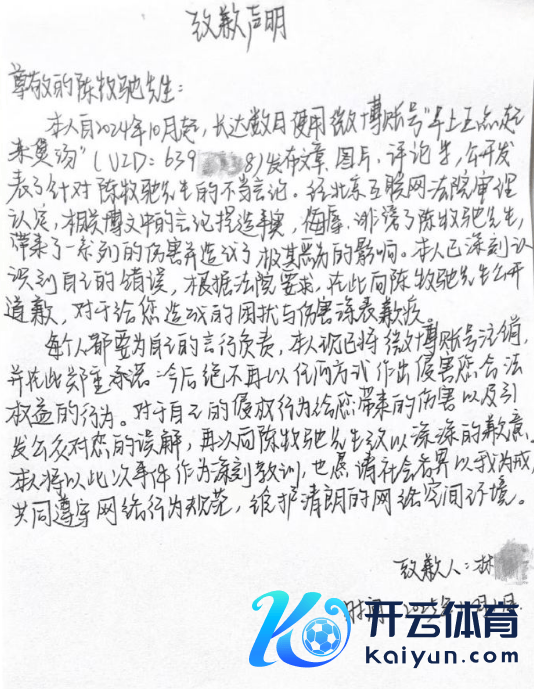 致歉声明
尊敬的陈牧驰先生：
本人自2024年10月起，长达数日使用微博账号"早上五点起
来煲汤"（UID：639 8）发布文章、图片、评论等，公开发
表了针对陈牧驰先生的不当言论。经北京互联网法院审理
认定，相关博文中的言论捏造事实，侮辱、诽谤了陈牧驰先生，
带来了一系列的伤害并造成了极其恶劣的影响。本人已深刻认
识到自己的错误，根据法院要求，在此向陈牧驰先生公开
道歉，对于给您造成的困扰与伤害深表歉疚。
每个人都要为自己的言行负责，本人现已将微博账号注销，
并在此郑重承诺：今后绝不再以任何方式作出侵害您合法
权益的行为。对于自己的侵权行为给您带来的伤害以及引
发公众对您的误解，再次向陈牧驰先生致以深深的歉意。
本人将以此次事件作为深刻教训，也恳请社会各界以我为戒，
共同遵守网络行为规范，维护清朗的网络空间环境。
致歉人：林
时间 2025年 月 日
开云体育
kaiyun.com